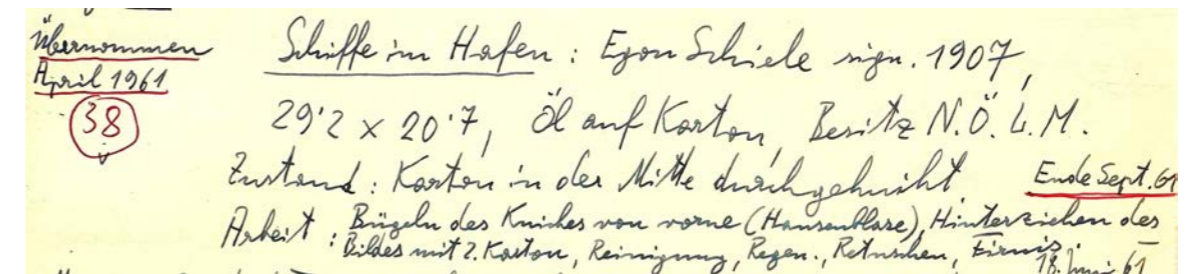 Übernommen
April 1961
38
Schiffe im Hafen : Egon Schiele sign. 1907,
29'2 x 20'7, Öl auf Karton, Besitz N.Ö.L.M.
Zustand : Karton in der Mitte durchgeknickt
Ende Sept. 61
Arbeit : Bügeln des Knickes von vorne (Hausenblase), Hinterziehen des
Bildes mit 2. Karton, Reinigung, Regen., Retuschen, Firnis.
61